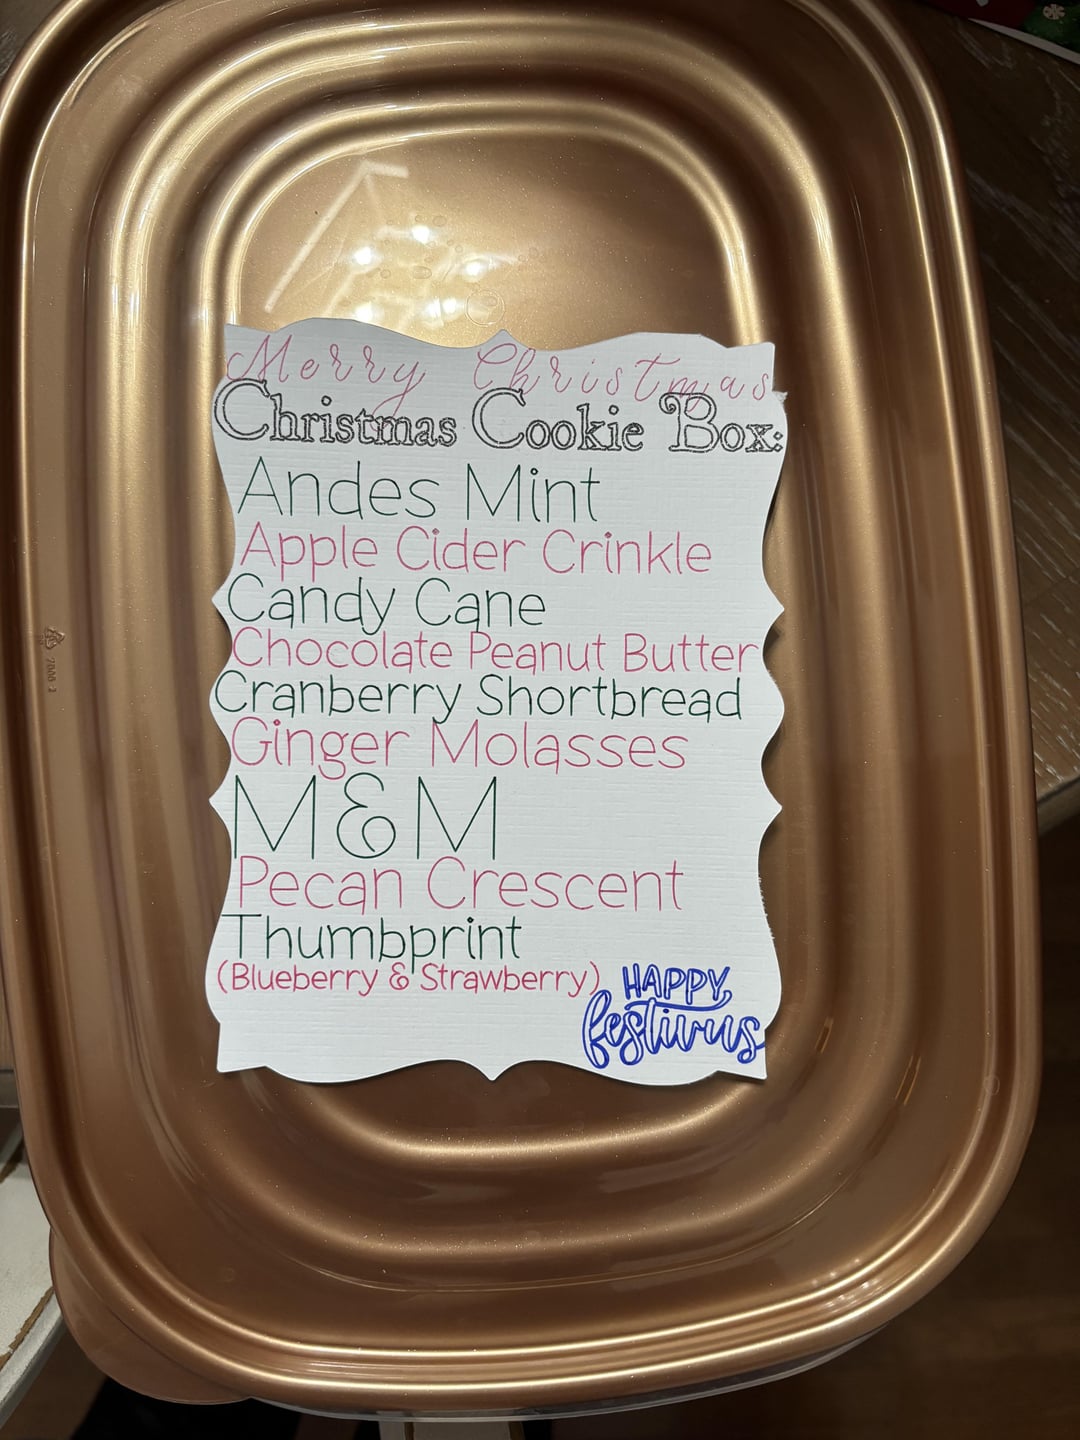 Merry Christmas
Christmas Cookie Box:
Andes Mint
Apple Cider Crinkle
Candy Cane
Chocolate Peanut Butter
Cranberry Shortbread
Ginger Molasses
M&M
Pecan Crescent
Thumbprint
(Blueberry & Strawberry)
HAPPY
festivus